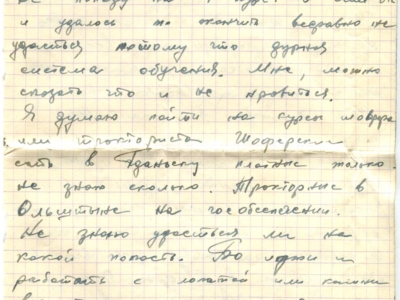 не поеду на
и удалось то кончить всёравно не
удасться потому что дурная
система обучения. Мне, можно
сказать что и не нравиться.
Я думаю пойти на курсы шофёра
или тракториста Шоферские
есть в Гданьску платные только
не знаю сколько. Тракторные в
Ольштыне на гособеспечении.
Не знаю удасться ли на
какой попасть. Бо идти и
работать с лопатой или